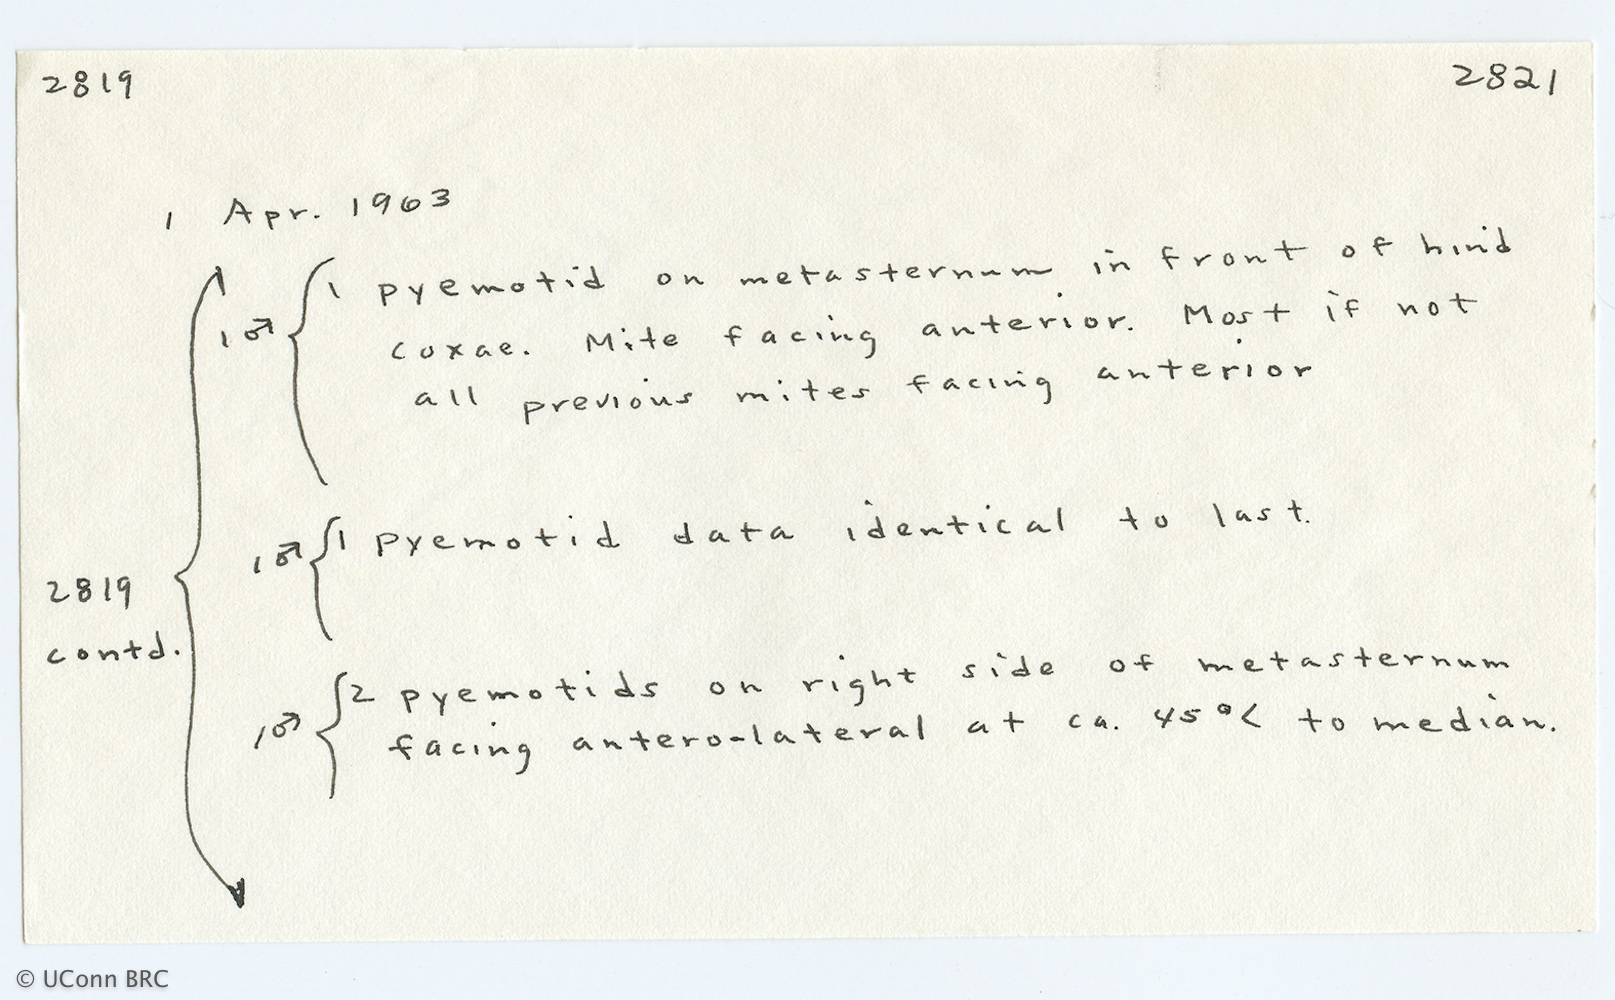 2819 2821
1 Apr. 1963
1 ♂ { 1 pyemotid on metasternum in front of hind
coxae. Mite facing anterior. Most if not
all previous mites facing anterior
1 ♂ { 1 pyemotid data identical to last.
2819
contd.
1 ♂ { 2 pyemotids on right side of metasternum
facing antero-lateral at ca. 45°< to median.
© UConn BRC